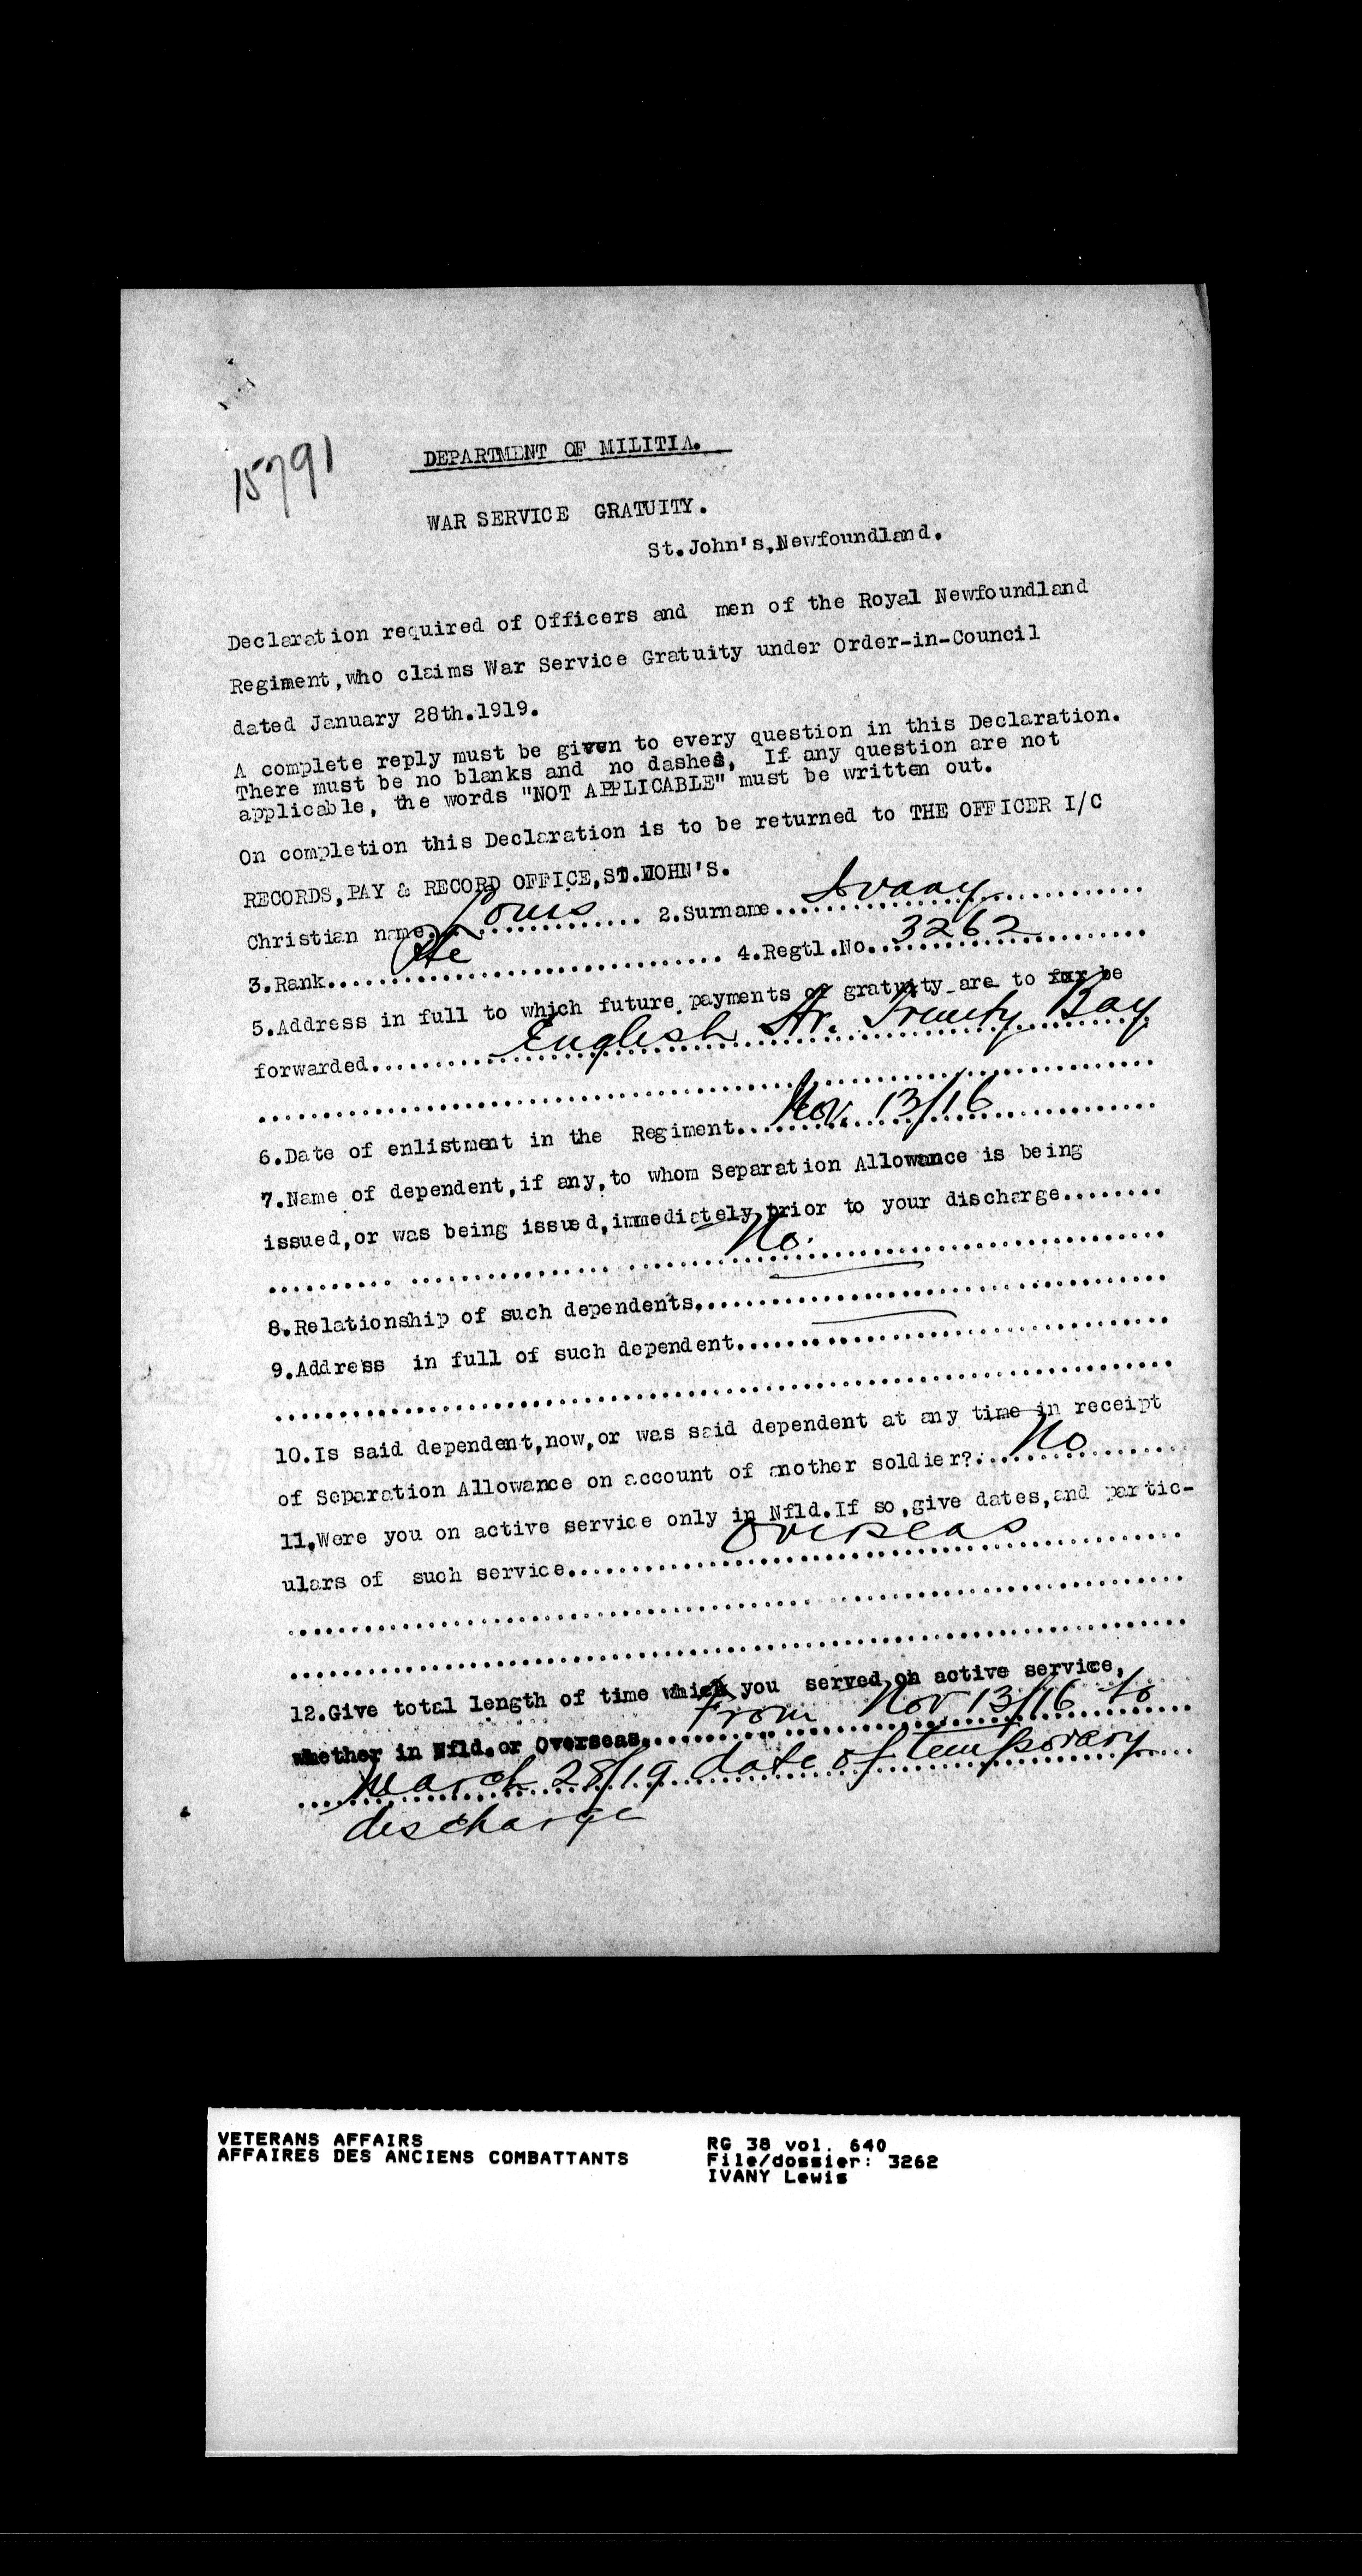 15791
DEPARTMENT OF MILITIA.
WAR SERVICE GRATUITY.
St.John's.Newfoundland.
Declaration required of Officers and men of the Royal Newfoundland
Regiment,who claims War Service Gratuity under Order-in-Council
dated January 28th.1919.
A complete reply must be given to every question in this Declaration.
There must be no blanks and no dashes, If any question are not
applicable, the words "NOT APPLICABLE" must be written out.
On completion this Declaration is to be returned to THE OFFICER I/C
RECORDS,PAY & RECORD OFFICE,ST.JOHN'S.
Christian name.. Louis .... 2.Surname... Ivany ............
3.Rank...... Pte ............ 4.Regtl.No.. 3262 ..........
5.Address in full to which future payments of gratuity are to be
forwarded......... English Hr. Trinity Bay
..............................................................
6.Date of enlistment in the Regiment... Nov. 13/16 ............
7.Name of dependent,if any,to whom Separation Allowance is being
issued,or was being issued,immediately prior to your discharge........
.......... ................ ....... No. ....................
8.Relationship of such dependents,..............................
9.Address in full of such dependent..............................
..............................................................
10.Is said dependent,now,or was said dependent at any time in receipt
of Separation Allowance on account of another soldier?... No .......
11.Were you on active service only in Nfld.If so,give dates,and partic-
ulars of such service......... Overseas ............
..............................................................
..............................................................
12.Give total length of time which you served on active service,
whether in Nfld.or Overseas. From Nov 13/16 to
... March 28/19 date of temporary ...
discharge
VETERANS AFFAIRS
AFFAIRES DES ANCIENS COMBATTANTS
RG 38 vol. 640
File/dossier: 3262
IVANY Lewis